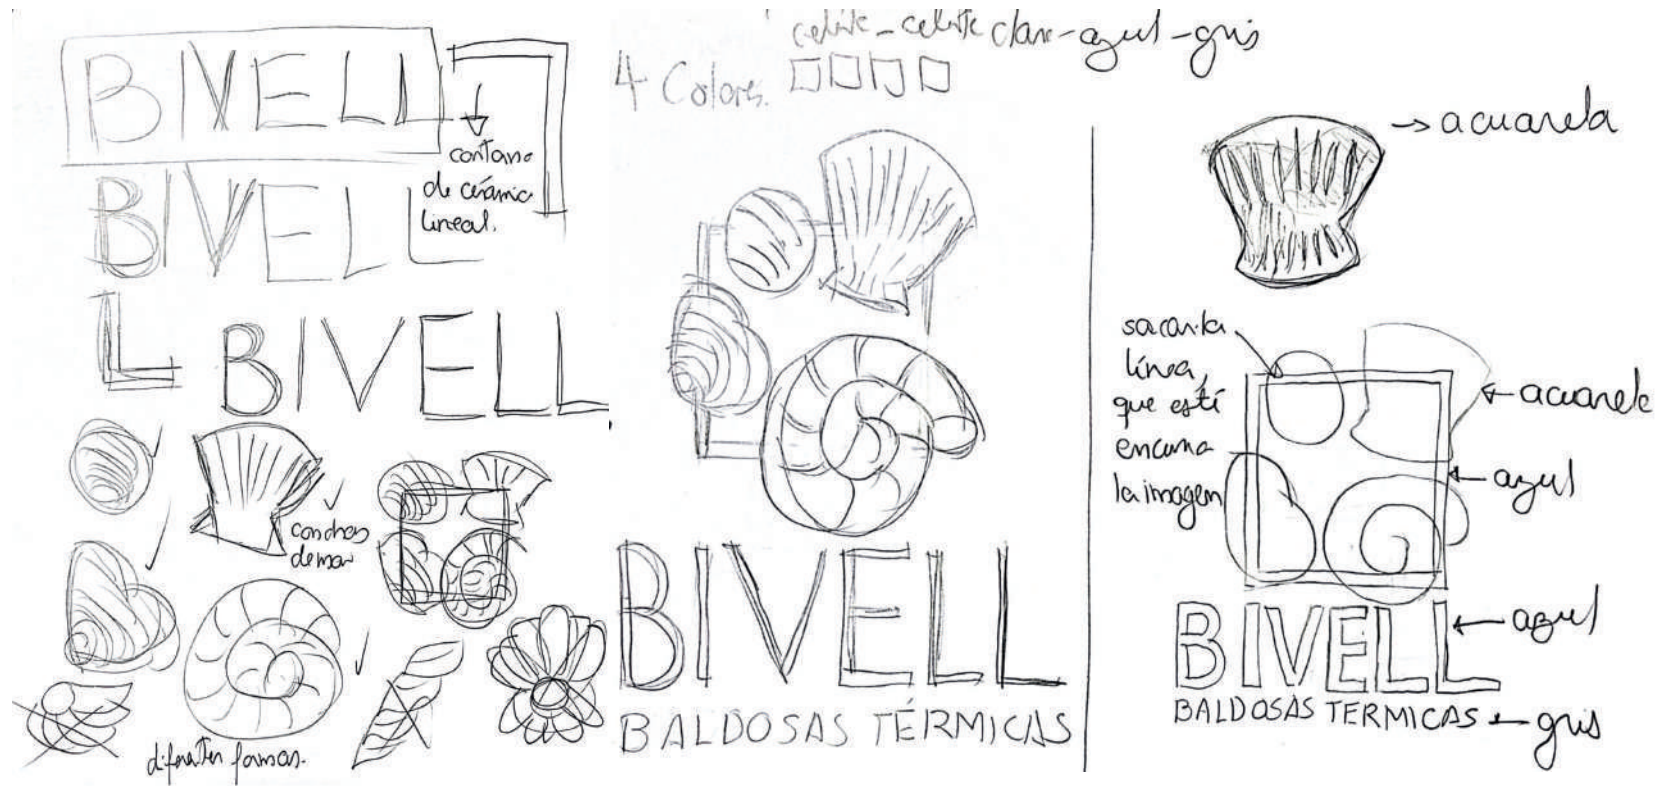 BIVELL
contorno
de cerámica
lineal.
BIVELL
L
BIVELL
conchas
de mar
diferentes formas.
celeste - celeste claro - azul - gris
4 Colores.
BIVELL
BALDOSAS TÉRMICAS
→ acuarela
sacar la
línea,
que esté
encima
la imagen
← acuarela
← azul
BIVELL
← azul
BALDOSAS TERMICAS
← gris